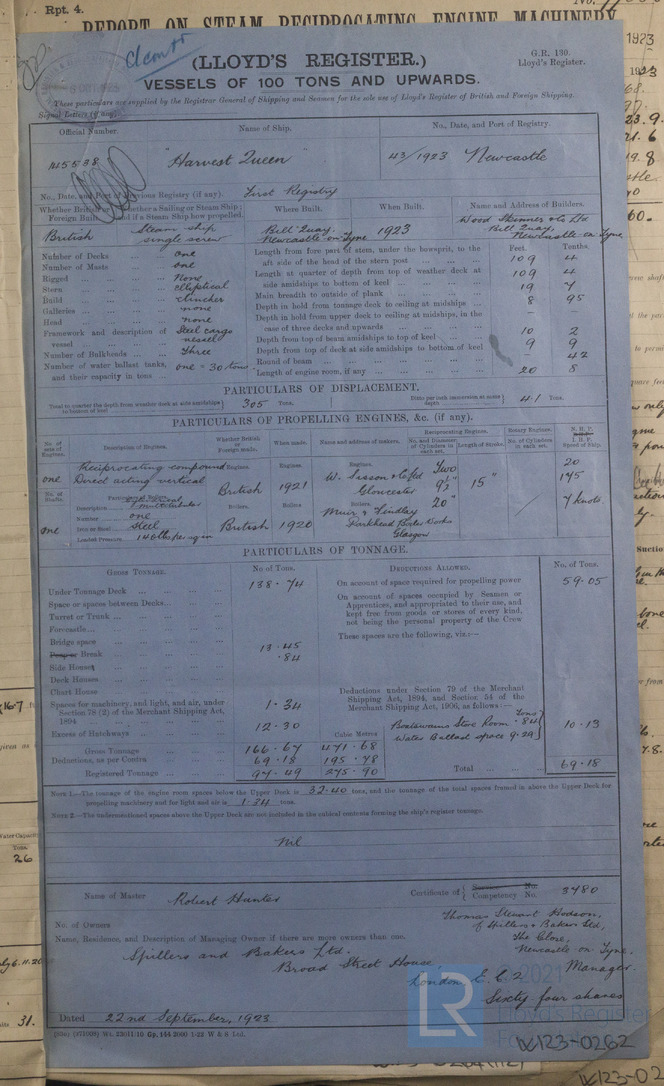 Rpt. 4.
REPORT ON STEAM RECIPROCATING ENGINE MACHINERY
No.
(LLOYD'S REGISTER.)
G.R. 130.
Lloyd's Register.
VESSELS OF 100 TONS AND UPWARDS.
These particulars are supplied by the Registrar General of Shipping and Seamen for the sole use of Lloyd's Register of British and Foreign Shipping.
Signal Letters (if any)
Official Number. Name of Ship. No., Date, and Port of Registry.
145538 "Harvest Queen" 43/1923 Newcastle
No., Date, and Port of Previous Registry (if any). First Registry
Whether British or Foreign Built. Whether a Sailing or Steam Ship; and if a Steam Ship how propelled. Where Built. When Built. Name and Address of Builders.
British Steam ship single screw Bill Quay, Newcastle-on-Tyne 1923 Wood Skinner & Co Ltd Bill Quay, Newcastle-on-Tyne
Number of Decks one
Number of Masts one
Rigged None
Stern elliptical
Build clincher
Galleries none
Head none
Framework and description of vessel Steel cargo vessel
Number of Bulkheads Three
Number of water ballast tanks, and their capacity in tons one = 30 tons
Feet. Tenths.
Length from fore part of stem, under the bowsprit, to the aft side of the head of the stern post 109 4
Length at quarter of depth from top of weather deck at side amidships to bottom of keel 109 4
Main breadth to outside of plank 19 7
Depth in hold from tonnage deck to ceiling at midships 8 95
Depth in hold from upper deck to ceiling at midships, in the case of three decks and upwards - -
Depth from top of beam amidships to top of keel 10 2
Depth from top of deck at side amidships to bottom of keel 9 9
Round of beam - 42
Length of engine room, if any 20 8
PARTICULARS OF DISPLACEMENT.
Total to quarter the depth from weather deck at side amidships to bottom of keel 305 Tons. Ditto per inch immersion at same depth 4.1 Tons.
PARTICULARS OF PROPELLING ENGINES, &c. (if any).
No. of sets of Engines. Description of Engines. Whether British or Foreign made. When made. Name and address of makers. Reciprocating Engines. No. and Diameter of Cylinders in each set. Length of Stroke. Rotary Engines. No. of Cylinders in each set. N.H.P. I.H.P. Speed of Ship.
one Reciprocating compound Direct acting vertical Engines. British Engines. 1921 Engines. W. Sisson & Co Ltd Gloucester Two 9½" 20" 15" 20 145
No. of Shafts. Description
one Number one
Iron or Steel Steel
Loaded Pressure 140 lbs per sq in
Boilers. British Boilers 1920 Boilers. Muir & Findlay Parkhead Boiler Works Glasgow 7 knots
PARTICULARS OF TONNAGE.
Gross Tonnage. No of Tons. Deductions Allowed. No. of Tons.
Under Tonnage Deck 138.74
Space or spaces between Decks
Turret or Trunk
Forecastle
Bridge space
Poop or Break 13.45
Side Houses .84
Deck Houses
Chart House
Spaces for machinery, and light, and air, under Section 78 (2) of the Merchant Shipping Act, 1894 1.34
Excess of Hatchways 12.30
Cubic Metres
Gross Tonnage 166.67 471.68
Deductions, as per Contra 69.18 195.78
Registered Tonnage 97.49 275.90
On account of space required for propelling power 59.05
On account of spaces occupied by Seamen or Apprentices, and appropriated to their use, and kept free from goods or stores of every kind, not being the personal property of the Crew
These spaces are the following, viz:—
Deductions under Section 79 of the Merchant Shipping Act, 1894, and Section 54 of the Merchant Shipping Act, 1906, as follows:—
Tons
Boatswains Store Room .84
Water Ballast space 9.29 10.13
Total 69.18
Note 1.—The tonnage of the engine room spaces below the Upper Deck is 32.40 tons, and the tonnage of the total spaces framed in above the Upper Deck for propelling machinery and for light and air is 1.34 tons.
Note 2.—The undermentioned spaces above the Upper Deck are not included in the cubical contents forming the ship's register tonnage.
Nil
Name of Master Robert Hunter Certificate of { Service No. Competency No. 3480
No. of Owners
Name, Residence, and Description of Managing Owner if there are more owners than one.
Thomas Stewart Hodson,
of Spillers & Bakers Ltd,
The Close,
Newcastle-on-Tyne.
Manager.
Spillers and Bakers Ltd.
Broad Street House
London E.C.2
Sixty four shares
Dated 22nd September, 1923
© 2021
LR
Lloyd's Register
W123-0262